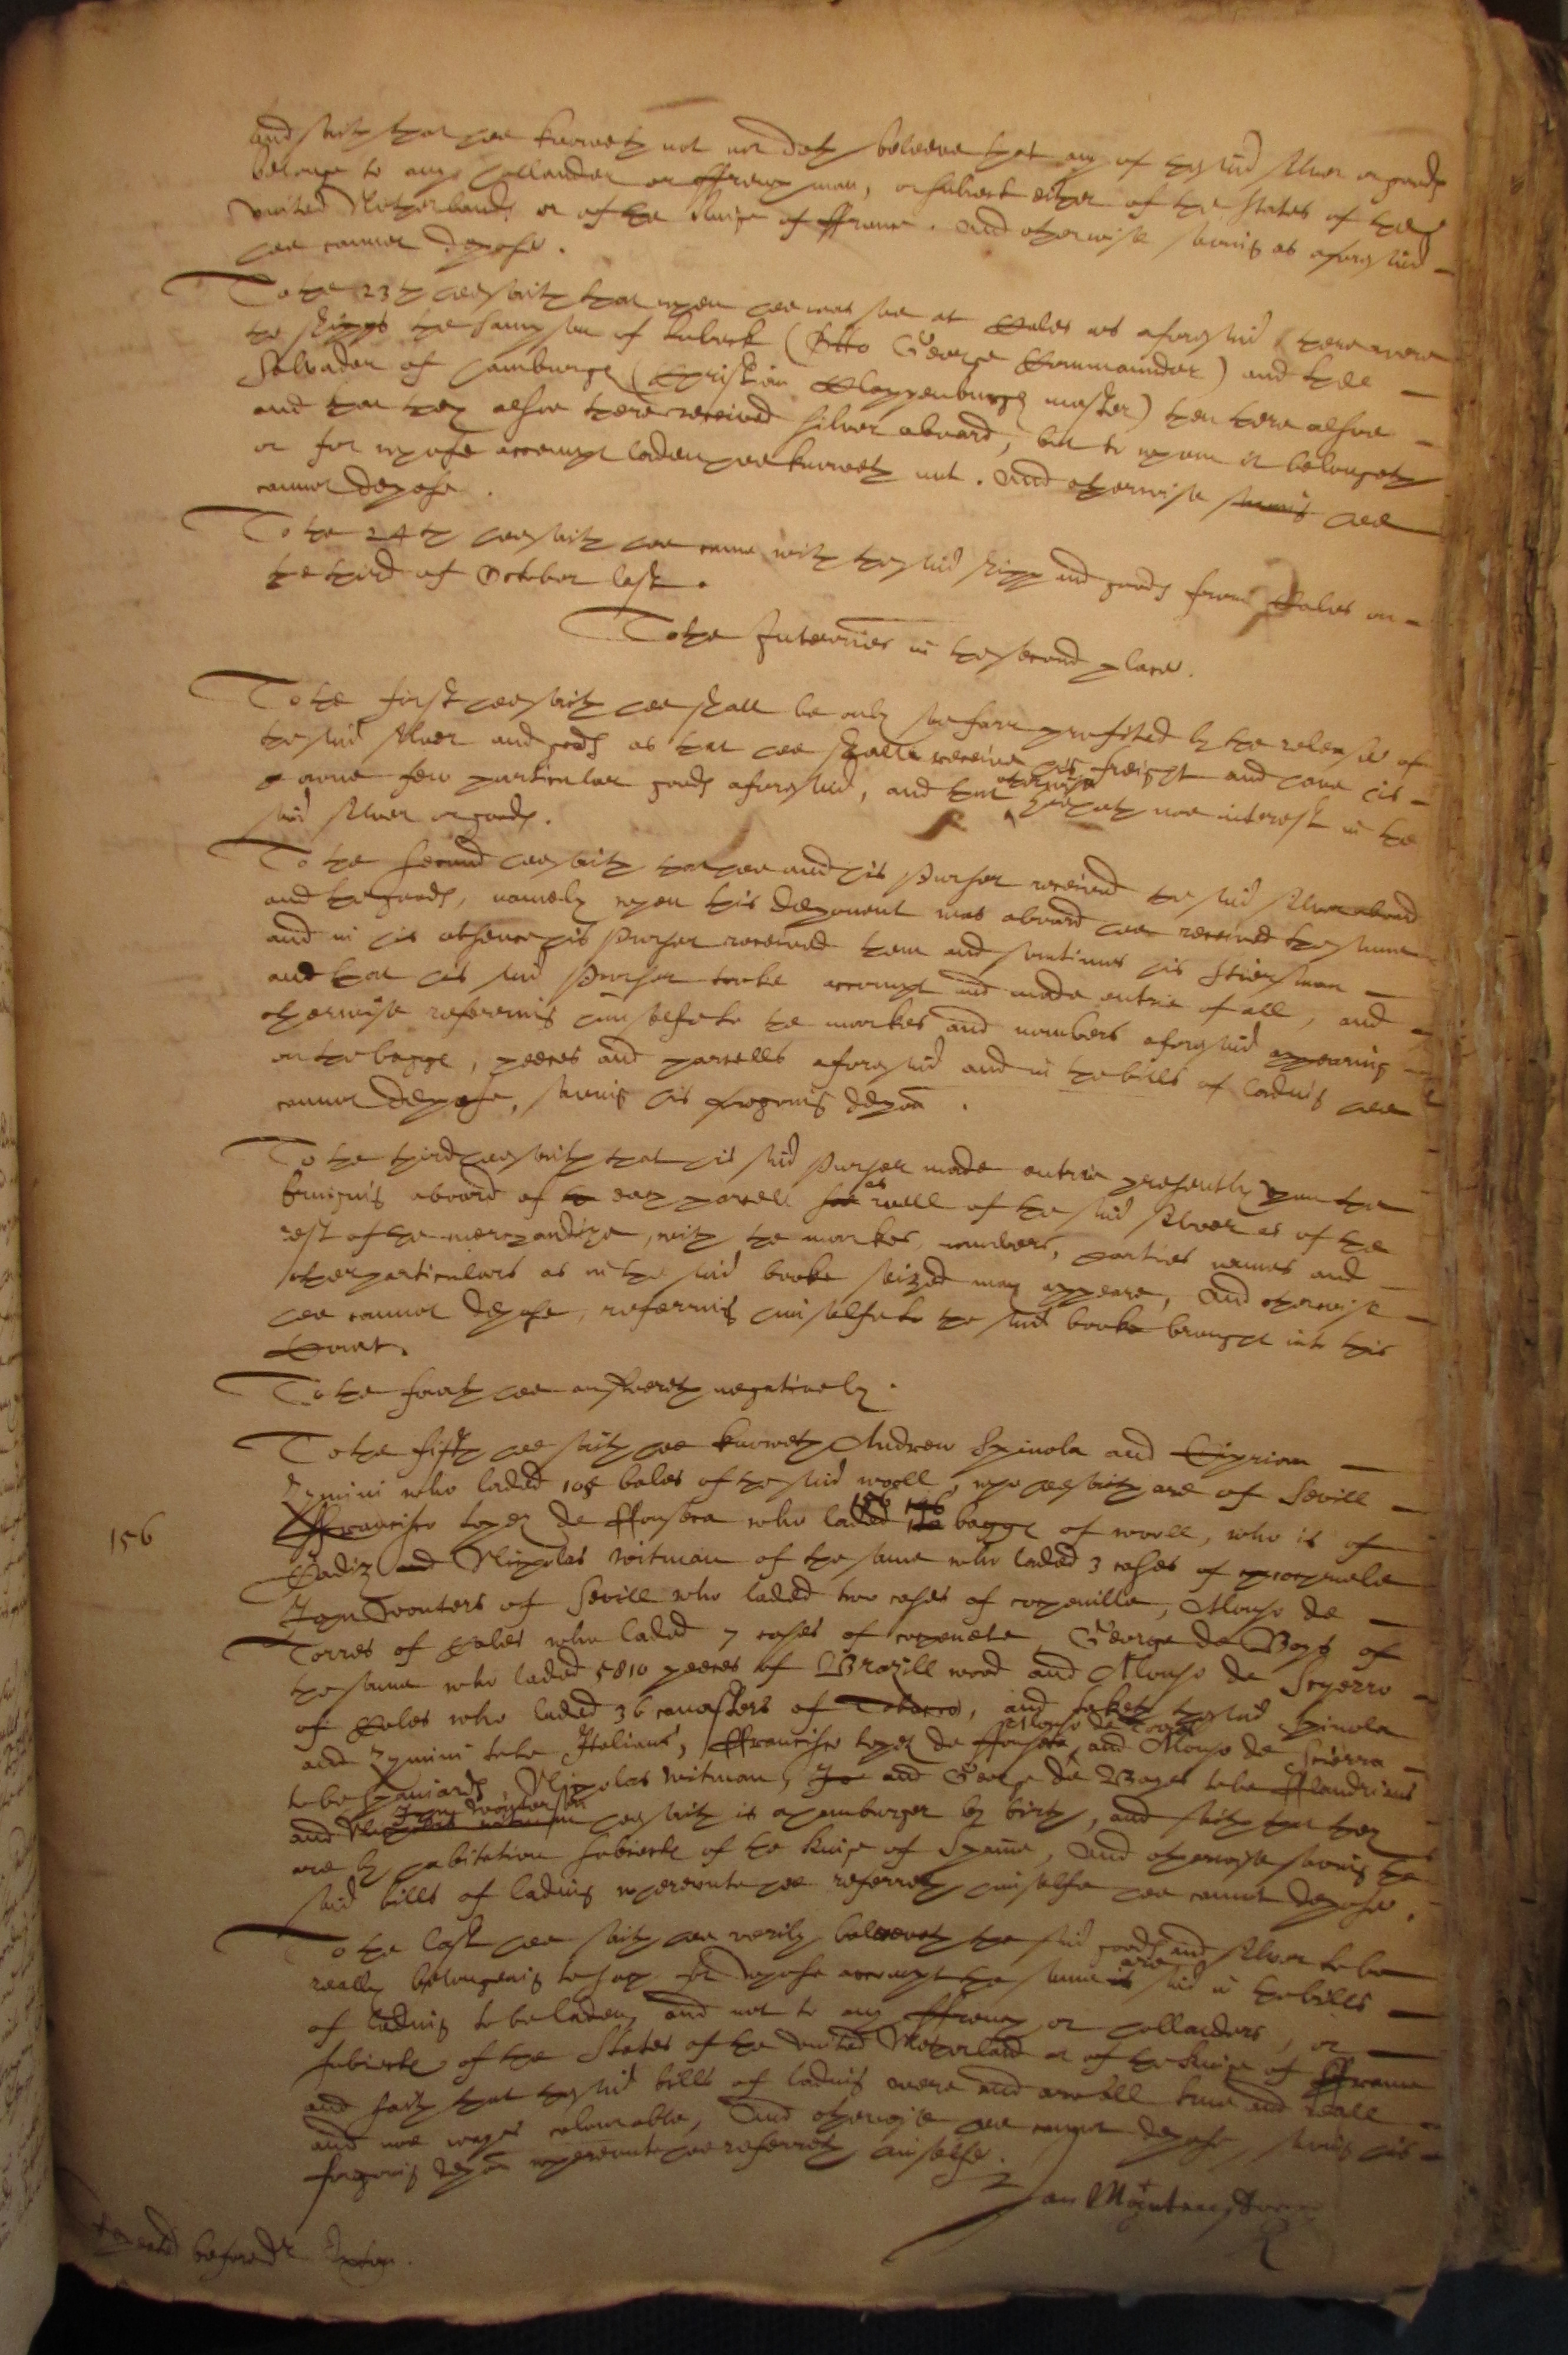 and saith that hee knoweth not nor doth beleeve that any of the said silver or goods
belonge to any hollander or ffrench man, or subiect either of the States of the
United Netherlands or of the kinge of ffrance. And otherwise saving as aforesaid
hee cannot depose.
To the 23th hee saith that when hee was soe at Cales as aforesaid there were
the shipps the Sampson of Lubeck (Otto George Commaunder) and the
Salvador of hamburgh (Christian Cloppenburgh master) then there alsoe
and that they alsoe there received silver aboard, but to whom it belongeth
or for whose accompt laden hee knoweth not. And otherwise saving hee
cannot depose.
To the 24th hee saith hee came with the said shipp and goods from Cales on
the third of October last.
To the Interries in the second place.
To the first hee saith hee shall be only soe farr profited by the release of
the said silver and goods as that hee shall receive his freight and have his
owne few particular goods aforesaid, and that otherwise hee hath noe interest in the
said silver or goods.
To the second hee saith that hee and his Purser received the said silver aboard
and the goods, namely when this deponent was aboard hee received the same
and in his absence his Purser received them and sometimes his Stiersman
and that his said Purser tooke accompt and made entrie of all, and
otherwise referring himselfe to the markes and numbers aforesaid appearing
on the baggs, peeces and parcells aforesaid and in the bills of lading hee
cannot depose, saving his foregoing deposn.
To the third hee saith that his said Purser made entrie presently upon the
bringing aboard of the each parcell soe as well of the said silver as of the
rest of the merchandize, with the markes, numbers, parties names and
other particulars as in the said booke seized may appeare, And otherwise
hee cannot depose, referring himselfe to the said booke brought into this
Court.
To the fourth hee answereth negatively.
To the fifth hee saith hee knoweth Andrew Spinola and Ciprian
Zymini who laded 105 bales of the said wooll, who hee saith are of Sevill
ffrancisco Lopez de ffonseca who laded 156 baggs of wooll, who is of
156
Cadiz and Nicholas Witman of the same who laded 3 cases of cochenele
Jan Wouters of Sevill who laded two cases of cochenille, Alonso de
Torres of Cales who laded 7 cases of cochenele George de Boys of
the same who laded 5810 peeces of Brazill wood and Alonso de Scyerro
of Cales who laded 36 canasters of Tobacco, and taketh the said Spinola
and Zymini to be Italians, ffrancisco Lopez de ffonseca, Alonso de Torres and Alonso de Scierra
to be Spaniards, Nicholas Witman, Jo and George de Boyes to be fflandrians
and Nicholas witman Jan Wouterson hee saith is a hamburger by birth, and saith that they
are by habitation subiects of the kinge of Spaine, And otherwise saving the
said bills of lading whereunto hee referreth himselfe hee cannot depose.
To the last hee saith hee verily beleeveth the said goods and silver to be
really belonging to such for whose accompt the same is are said in the bills
of lading to be laden, and not to any ffrench or hollanders, or
subiects of the States of the United Netherland or of the kinge of ffrance
and saith that the said bills of lading were and are all true and reall
and noe wayes colourable, And otherwise hee cannot depose, saving his
foregoing deposn whereunto hee referreth himselfe.
Repeated before dr